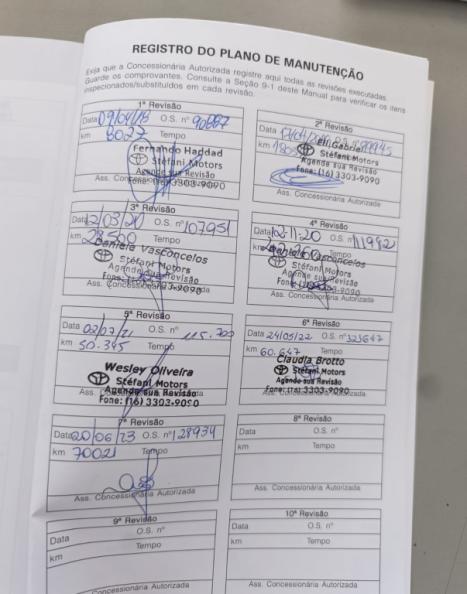 REGISTRO DO PLANO DE MANUTENÇÃO
Exija que a Concessionária Autorizada registre aqui todas as revisões executadas.
Guarde os comprovantes. Consulte a Seção 9-1 deste Manual para verificar os itens
inspecionados/substituídos em cada revisão.
1ª Revisão
Data 09/04/18 O.S. nº 90887
km 8027 Tempo
Fernando Haddad
Stéfani Motors
Agende sua Revisão
Fone: (16) 3303-9090
Ass. Concessionária Autorizada
2ª Revisão
Data O.S. nº 99945
km Tempo
Eli Gabriel
Stéfani Motors
Agende sua Revisão
Fone: (16) 3303-9090
Ass. Concessionária Autorizada
3ª Revisão
Data 12/03/20 O.S. nº 107951
km 28500 Tempo
Daniela Vasconcelos
Stéfani Motors
Agende sua Revisão
Fone: (16) 3303-9090
Ass. Concessionária Autorizada
4ª Revisão
Data 02-11-20 111992
km Tempo
Daniela Vasconcelos
Stéfani Motors
Agende sua Revisão
Ass. Concessionária Autorizada
5ª Revisão
Data 02/07/21 O.S. nº 115.700
km 50.345 Tempo
Wesley Oliveira
Stéfani Motors
Agende sua Revisão
Fone: (16) 3303-9090
Ass.
6ª Revisão
Data 24/05/22 O.S. nº
km 60.647 Tempo
Claudia Brotto
Stéfani Motors
Agende sua Revisão
Fone: (16) 3303-9090
Ass. Autorizada
7ª Revisão
Data 20/06/23 O.S. nº 128934
km 70021 Tempo
Ass. Concessionária Autorizada
8ª Revisão
Data O.S. nº
km Tempo
Ass. Concessionária Autorizada
9ª Revisão
Data O.S. nº
km Tempo
Ass. Concessionária Autorizada
10ª Revisão
Data O.S. nº
km Tempo
Ass. Concessionária Autorizada